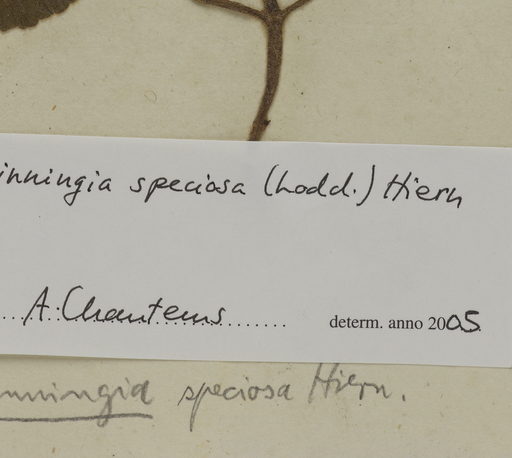 inningia speciosa (Lodd.) Hiern
A. Chautems
determ. anno 2005
nningia speciosa Hiern.